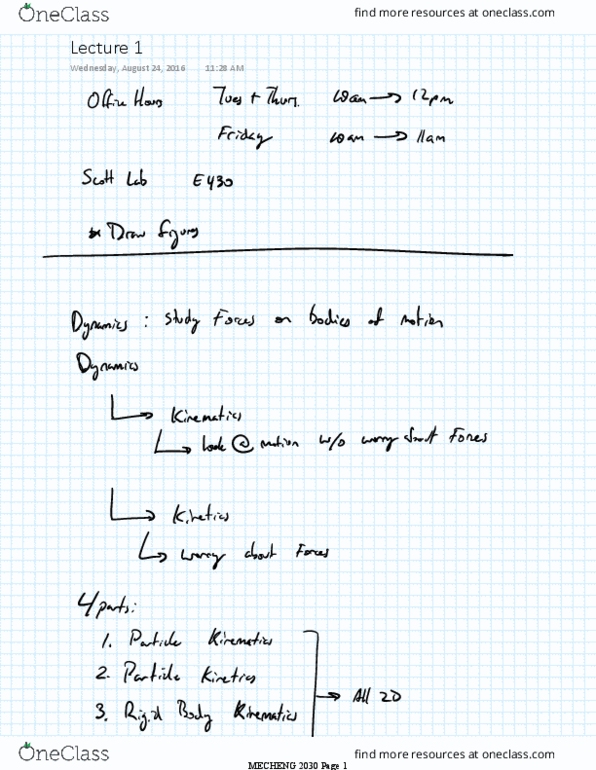 OneClass
find more resources at oneclass.com
Lecture 1
Wednesday, August 24, 2016 11:28 AM
Office Hours Tues + Thurs. 10am → 12pm
Friday 10am → 11am
Scott Lab E430
* Draw figures
Dynamics : study Forces on bodies of motion
Dynamics
↳ Kinematics
↳ look @ motion w/o worry about Forces
↳ Kinetics
↳ worry about Forces
4 parts:
1. Particle Kinematics
2. Particle Kinetics
→ All 2D
3. Rigid Body Kinematics
OneClass
find more resources at oneclass.com
MECHENG 2030 Page 1